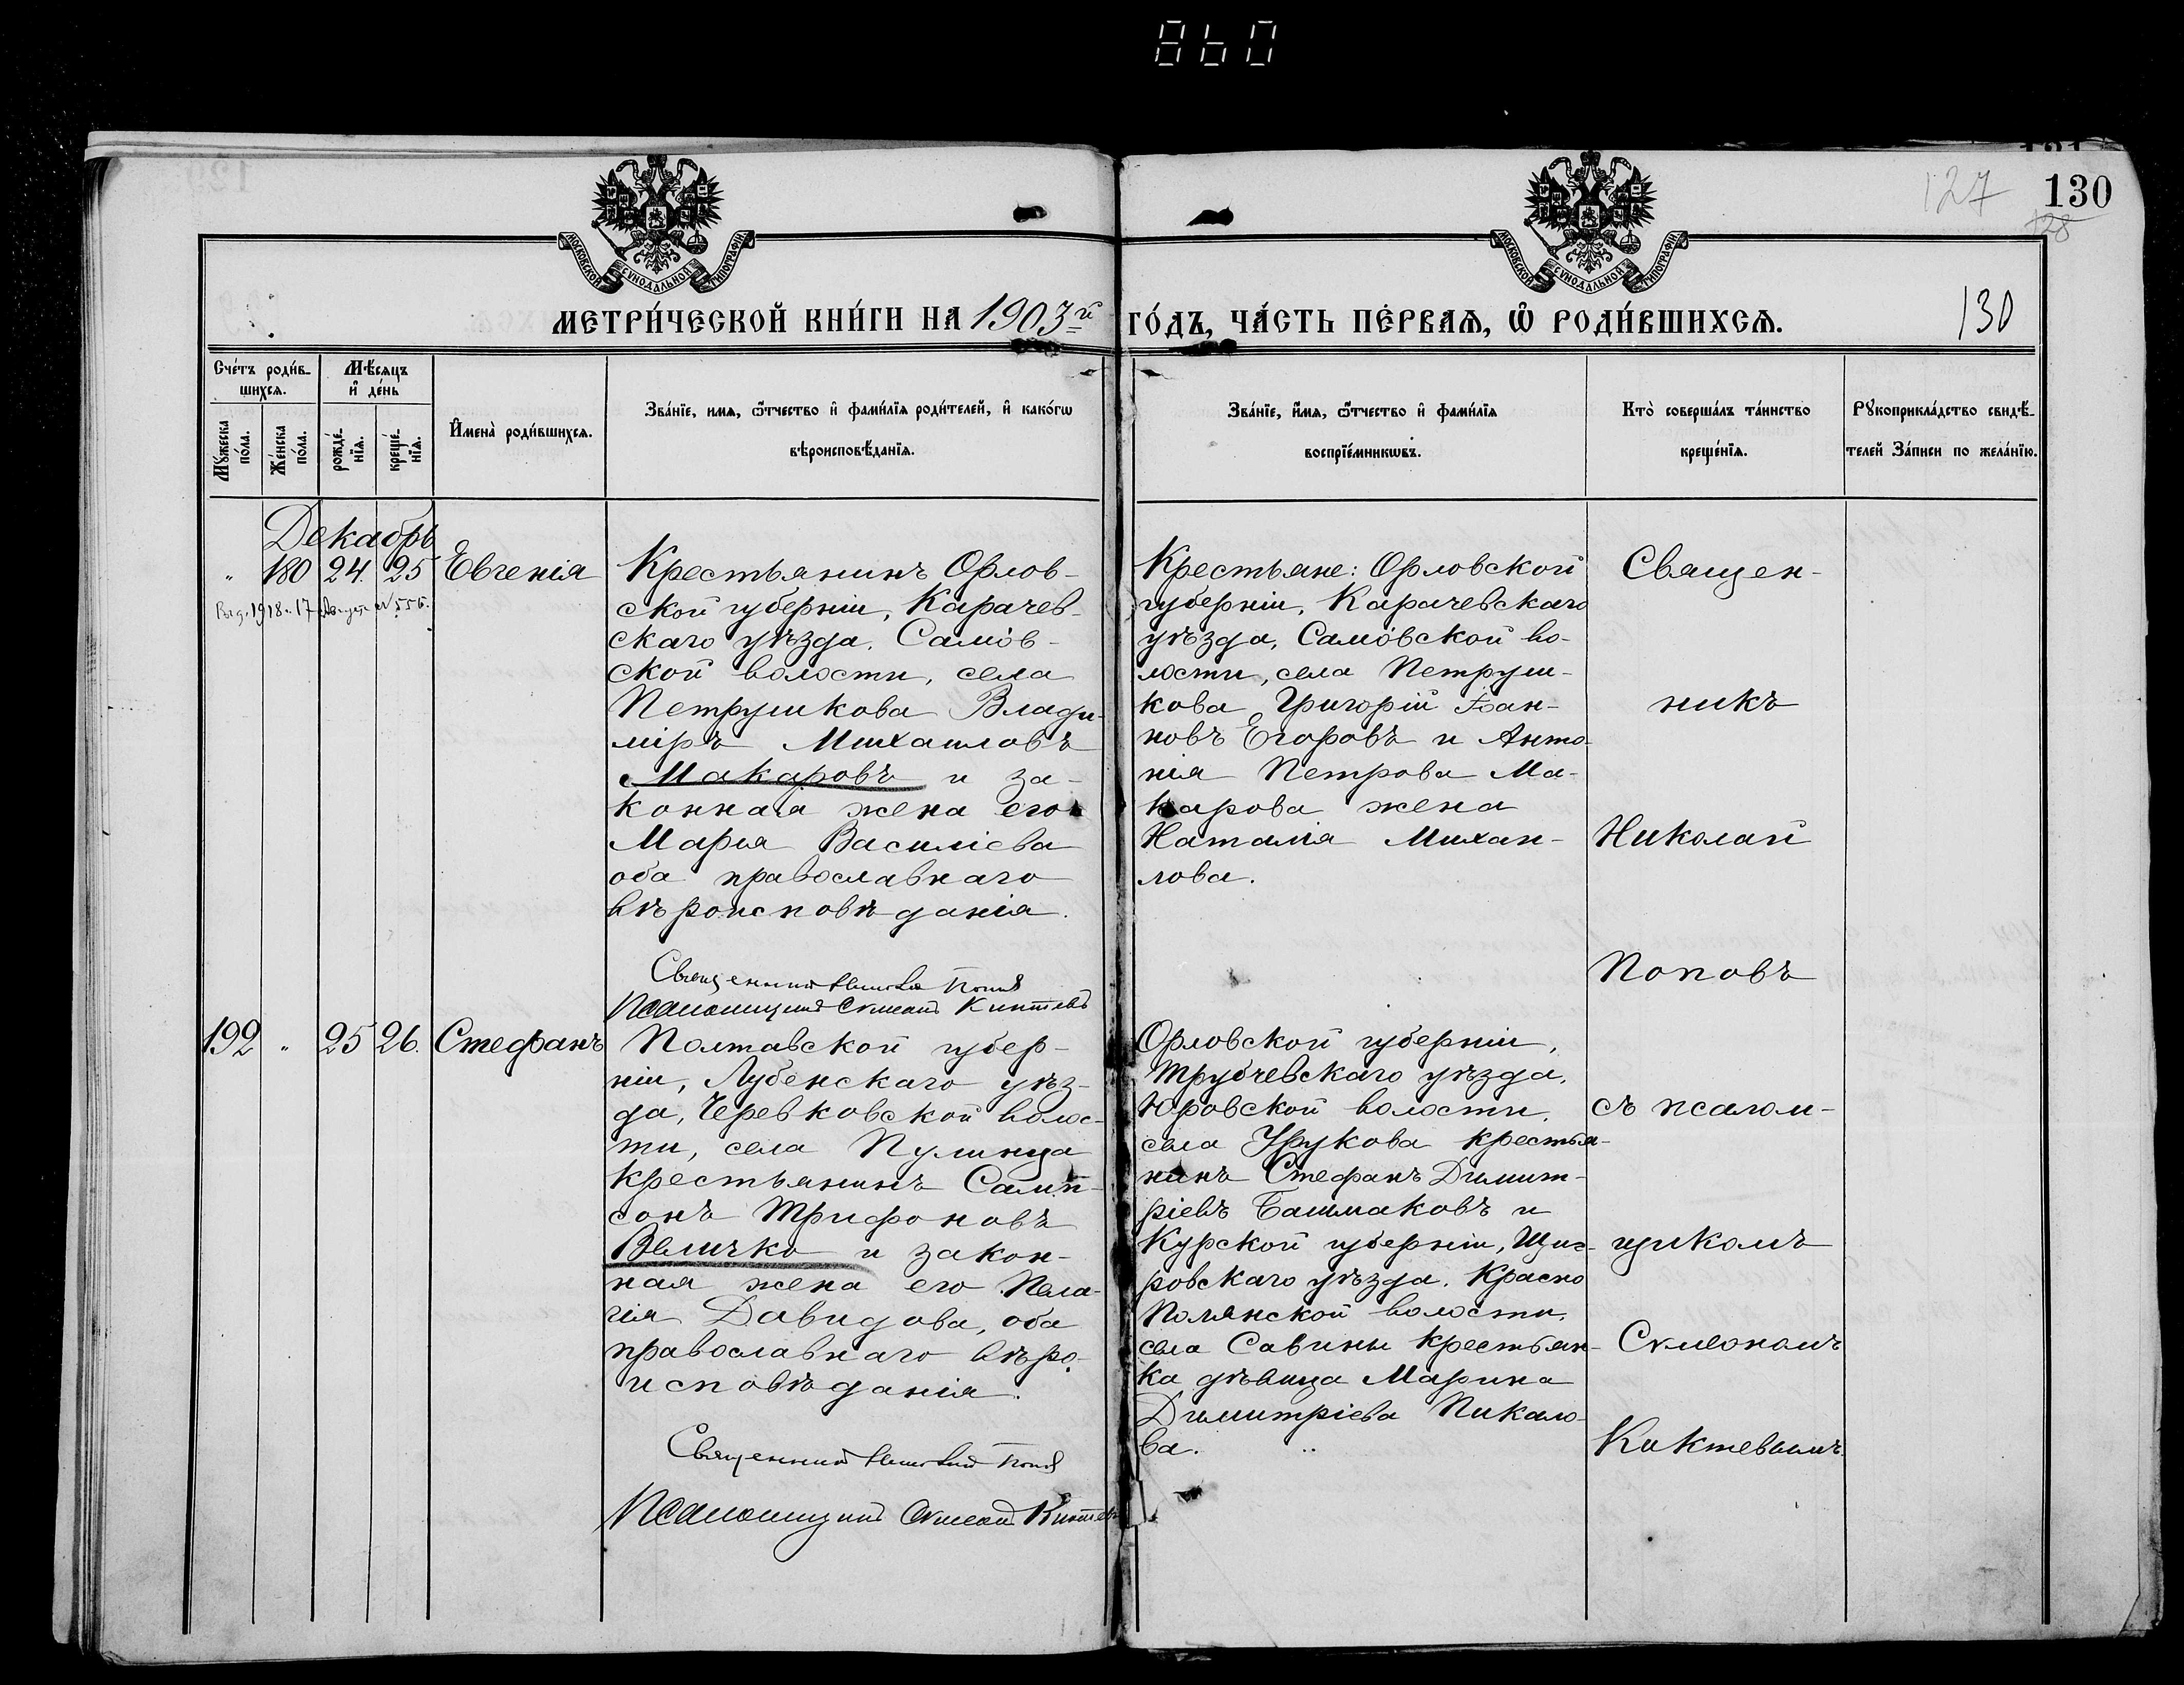 860
127
130
128
МОСКОВСКОЙ СѴНОДАЛЬНОЙ ТИПОГРАФІИ
МОСКОВСКОЙ СѴНОДАЛЬНОЙ ТИПОГРАФІИ
МЕТРИ́ЧЕСКОЙ КНИ́ГИ НА 1903й ГО́ДЪ, ЧА́СТЬ ПЕ́РВАѦ, Ѽ РОДИ́ВШИХСѦ.
130
Сче́тъ роди́в-
шихсѧ.
Мꙋ́жеска
по́ла.
Же́нска
по́ла.
Мѣ́сѧцъ
и҆ де́нь
рожде́-
нїѧ.
креще́-
нїѧ.
И҆мена̀ роди́вшихсѧ.
Зва́нїе, имѧ, ѻ҆́тчество и҆ фами́лїѧ роди́телей, и҆ како́гѡ
вѣроисповѣ́данїѧ.
Зва́нїе, и҆́мѧ, ѻ҆́тчество и҆ фами́лїѧ
воспрїе́мникѡвъ.
Кто̀ соверша́лъ та́инство
креще́нїѧ.
Рꙋкоприкла́дство свидѣ́-
телей За́писи по жела́нїю.
Декабрь
" 180 24. 25 Евгенія
1918 17
Крестьянинъ Орлов-
ской губерніи, Карачев-
скаго уѣзда, Самов-
ской волости, села
Петрушкова Влади-
міръ Михаиловъ
Макаровъ и за-
конная жена его
Марія Василіева
оба православнаго
вѣроисповѣданія.
Священникъ Николай Поповъ
Псаломщикъ Сѵмеонъ Киктевъ
Крестьяне: Орловской
губерніи, Карачевскаго
уѣзда, Самовской во-
лости, села Петруш-
кова Григорій Іоан-
новъ Егоровъ и Анто-
нія Петрова Ма-
карова жена
Наталія Михаи-
лова.
Священ-
никъ
Николай
Поповъ
192 " 25 26. Стефанъ
Полтавской губер-
ніи, Лубенскаго уѣз-
да, Черевковской волос-
ти, села Пулинца
крестьянинъ Самп-
сонъ Трифоновъ
Величко и закон-
ная жена его Пела-
гія Давидова, оба
православнаго вѣро-
исповѣданія.
Священникъ Николай Поповъ
Псаломщикъ Сѵмеонъ Киктевъ
Орловской губерніи,
Трубчевскаго уѣзда,
Юровской волости,
села Урукова крестья-
нинъ Стефанъ Димит-
ріевъ Башмаковъ и
Курской губерніи, Щиг-
ровскаго уѣзда, Красно
Полянской волости,
села Савины крестьян-
ка дѣвица Марина
Димитріева Пикало-
ва.
съ псалом-
щикомъ
Сѵмеономъ
Киктевымъ.